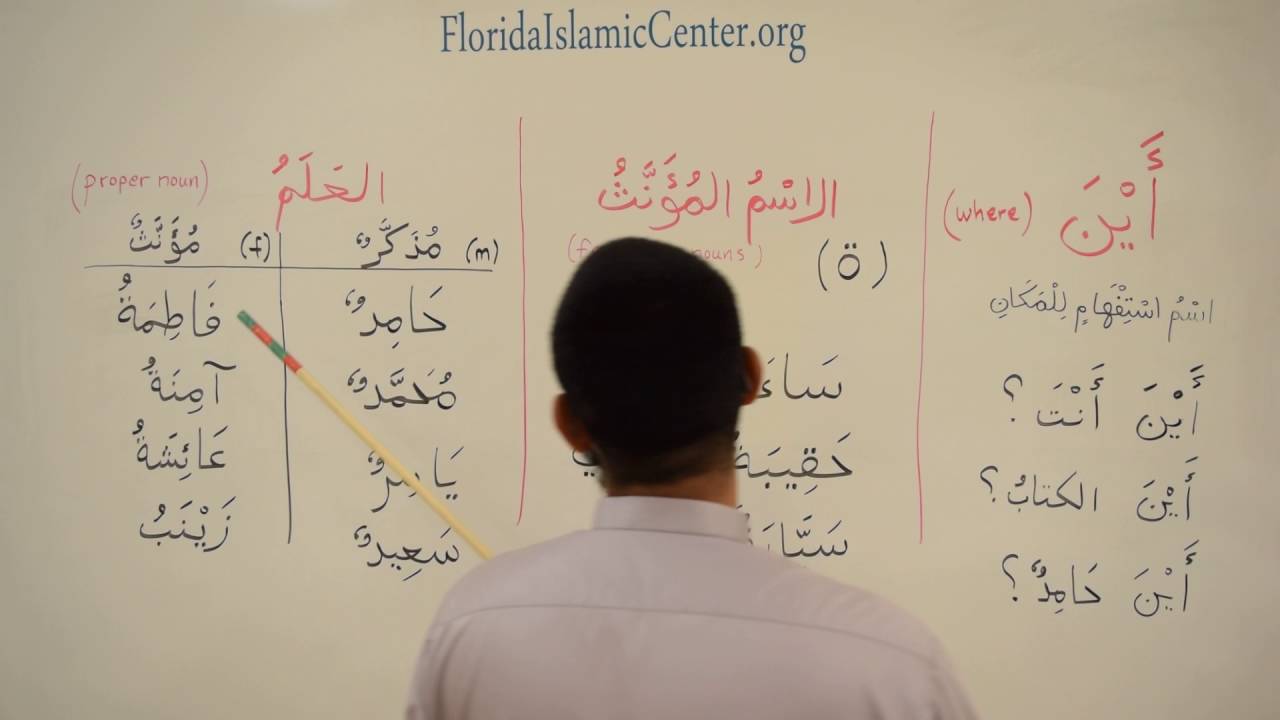 FloridaIslamicCenter.org
أَيْنَ (where)
اسْمُ اسْتِفْهَامٍ لِلْمَكَانِ
أَيْنَ أَنْتَ ؟
أَيْنَ الكتابُ ؟
أَيْنَ حَامِدٌ ؟
الاسْمُ المُؤَنَّثُ
nouns)
(ة)
حَقِيبَةٌ
العَلَمُ (proper noun)
(m) مُذَكَّرٌ (f) مُؤَنَّثٌ
حَامِدٌ فَاطِمَةُ
مُحَمَّدٌ آمِنَةُ
يَاسِرٌ عَائِشَةُ
سَعِيدٌ زَيْنَبُ